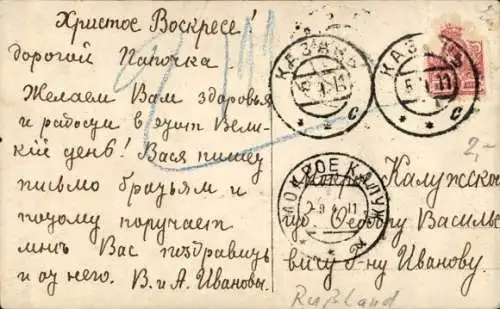 Христос Воскресе!
дорогой Папочка.
Желаем Вам здоровья
и радости в этит Вели-
кій день! Вася пишет
письмо братьям и
потому поручает
мнѣ Вас поздравить
и от него. В. и А. Ивановы.
КАЗАНЬ
5 11
с
КАЗАНЬ
5 11
с
МОКРОЕ КАЛУЖ.
9 4 11
2,-
Калужской
Федору Василье-
вичу Г-ну Иванову.
Rußland